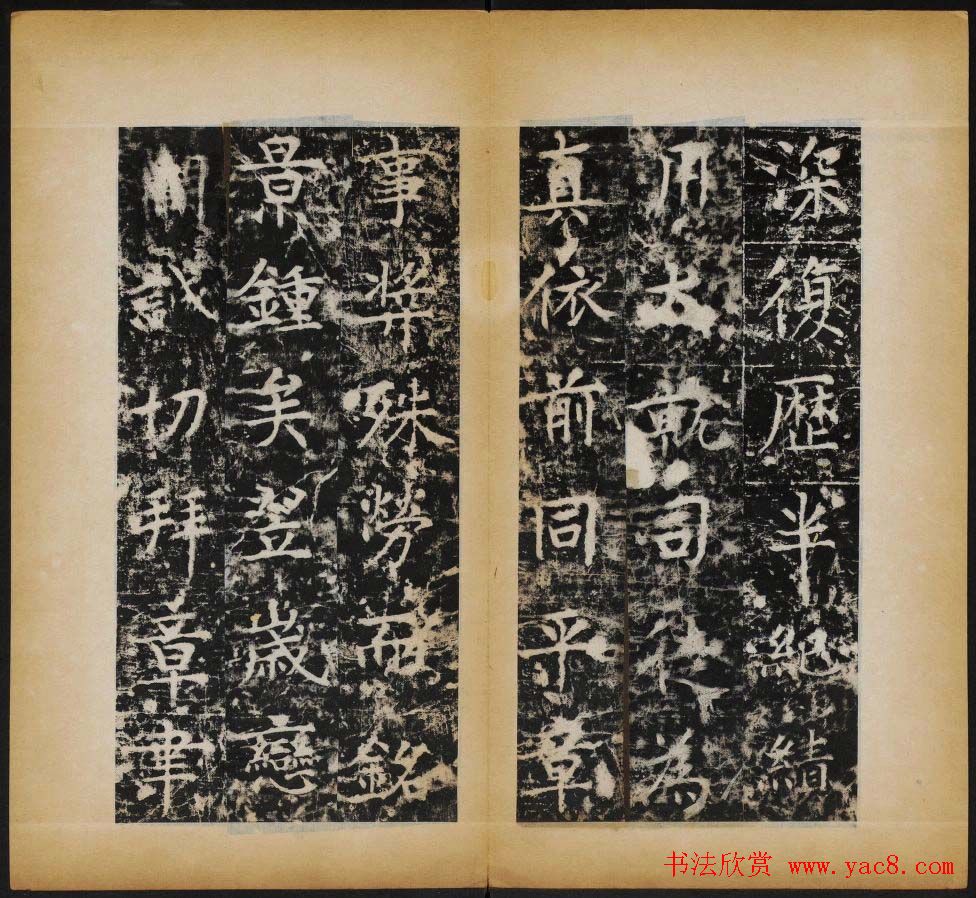 深復歷半紀績
用大就司徒為
真依前同平章
事奨殊勞而銘
景鍾矣翌歲戀
誠切拜章聿
书法欣赏 www.yac8.com